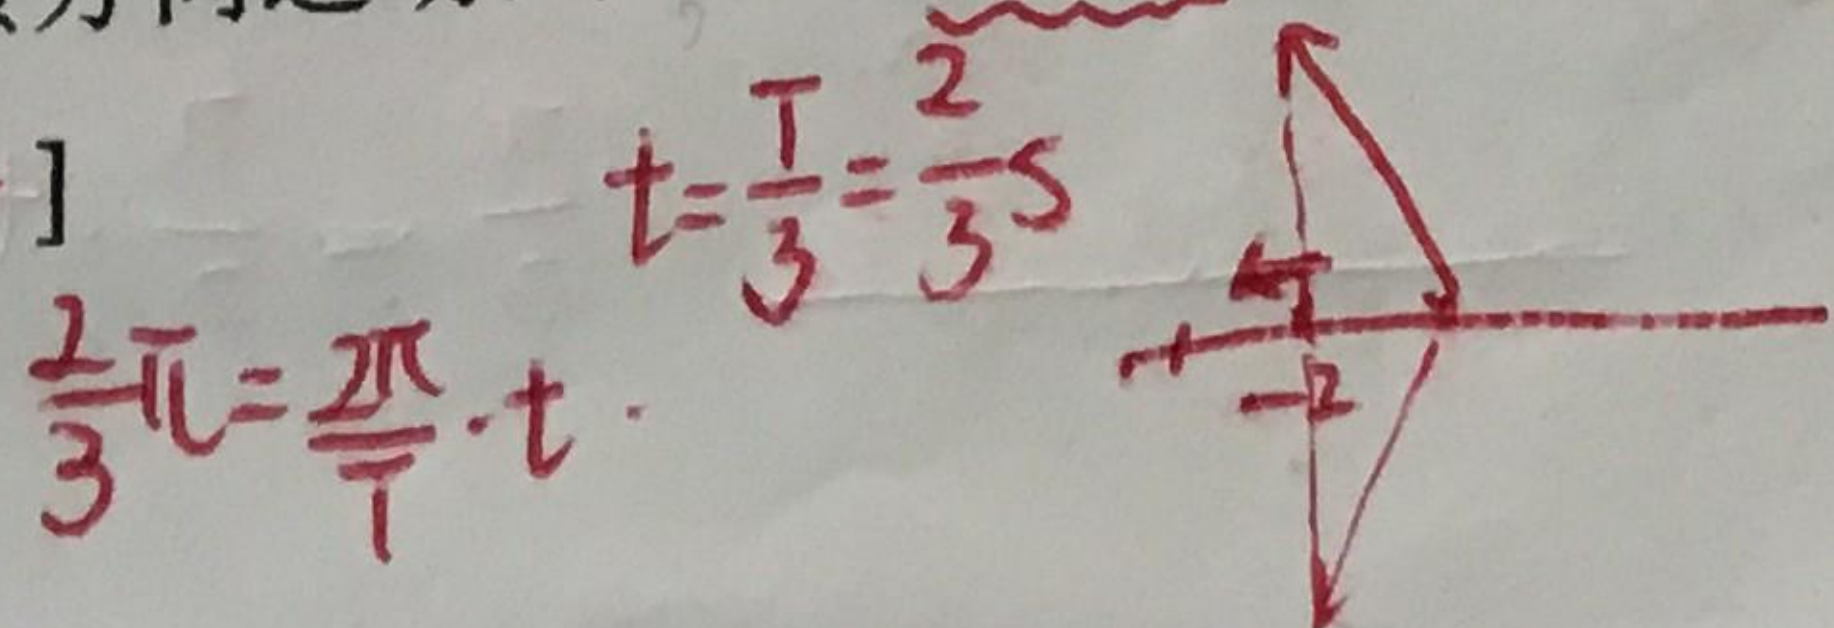 ]
t = T/3 = 2/3 s
2/3 π = 2π/T · t ·
-2